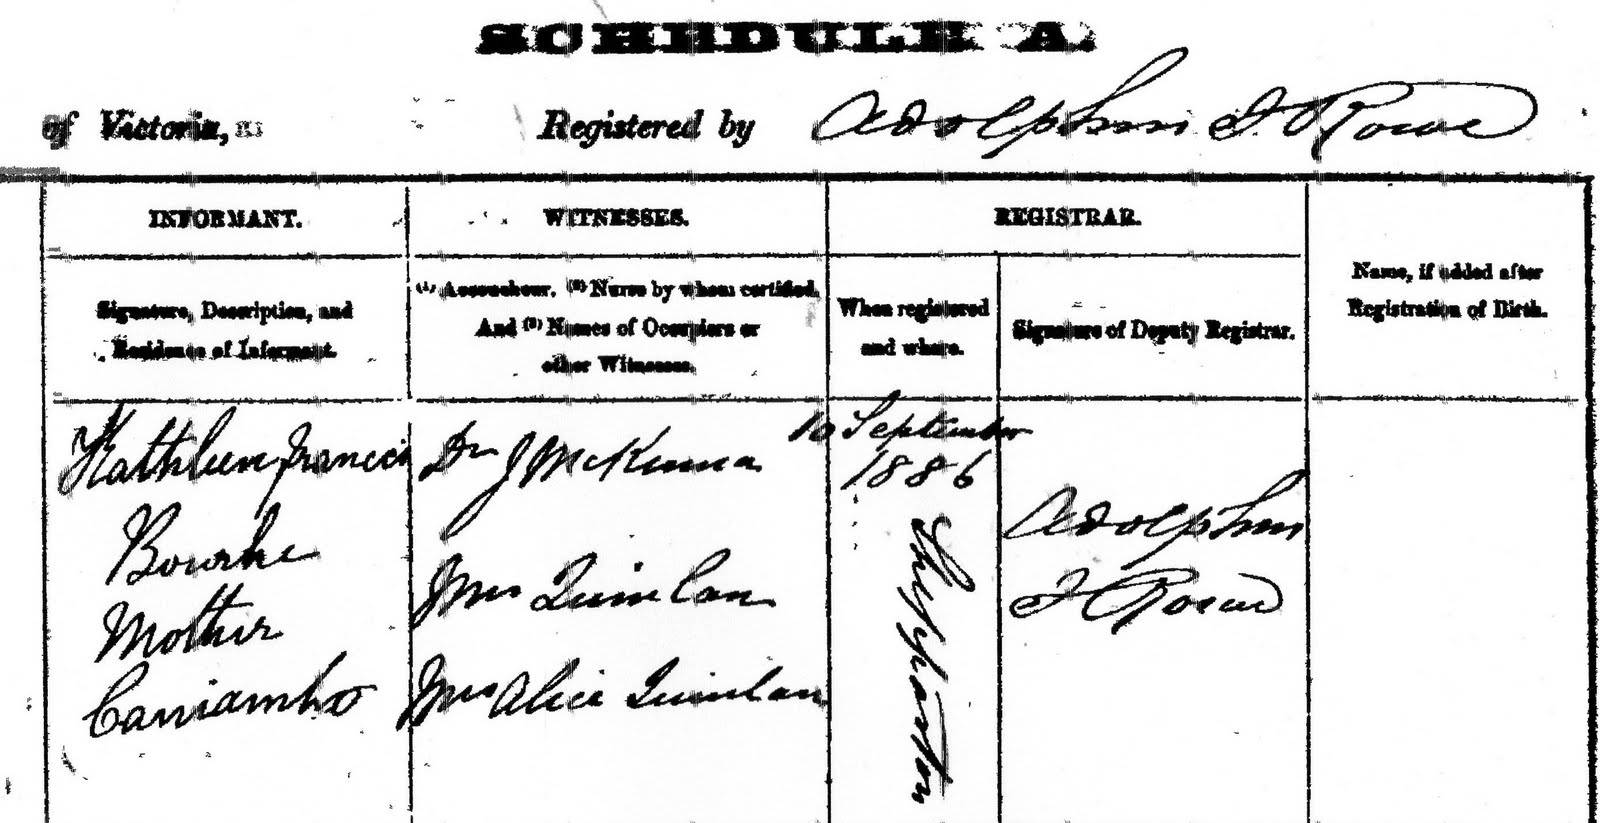 SCHEDULE A.
of Victoria, Registered by Adolphus F. Rowe
INFORMANT.
WITNESSES.
REGISTRAR.
Signature, Description, and
Residence of Informant.
(1) Accoucheur. (2) Nurse by whom certified.
And (3) Names of Occupiers or
other Witnesses.
When registered
and where.
Signature of Deputy Registrar.
Name, if added after
Registration of Birth.
Kathleen Francis
Bourke
Mother
Caniambo
Dr J McKenna
Mrs Quinlan
Mrs Alice Quinlan
10 September
1886
Shepparton
Adolphus
F Rowe